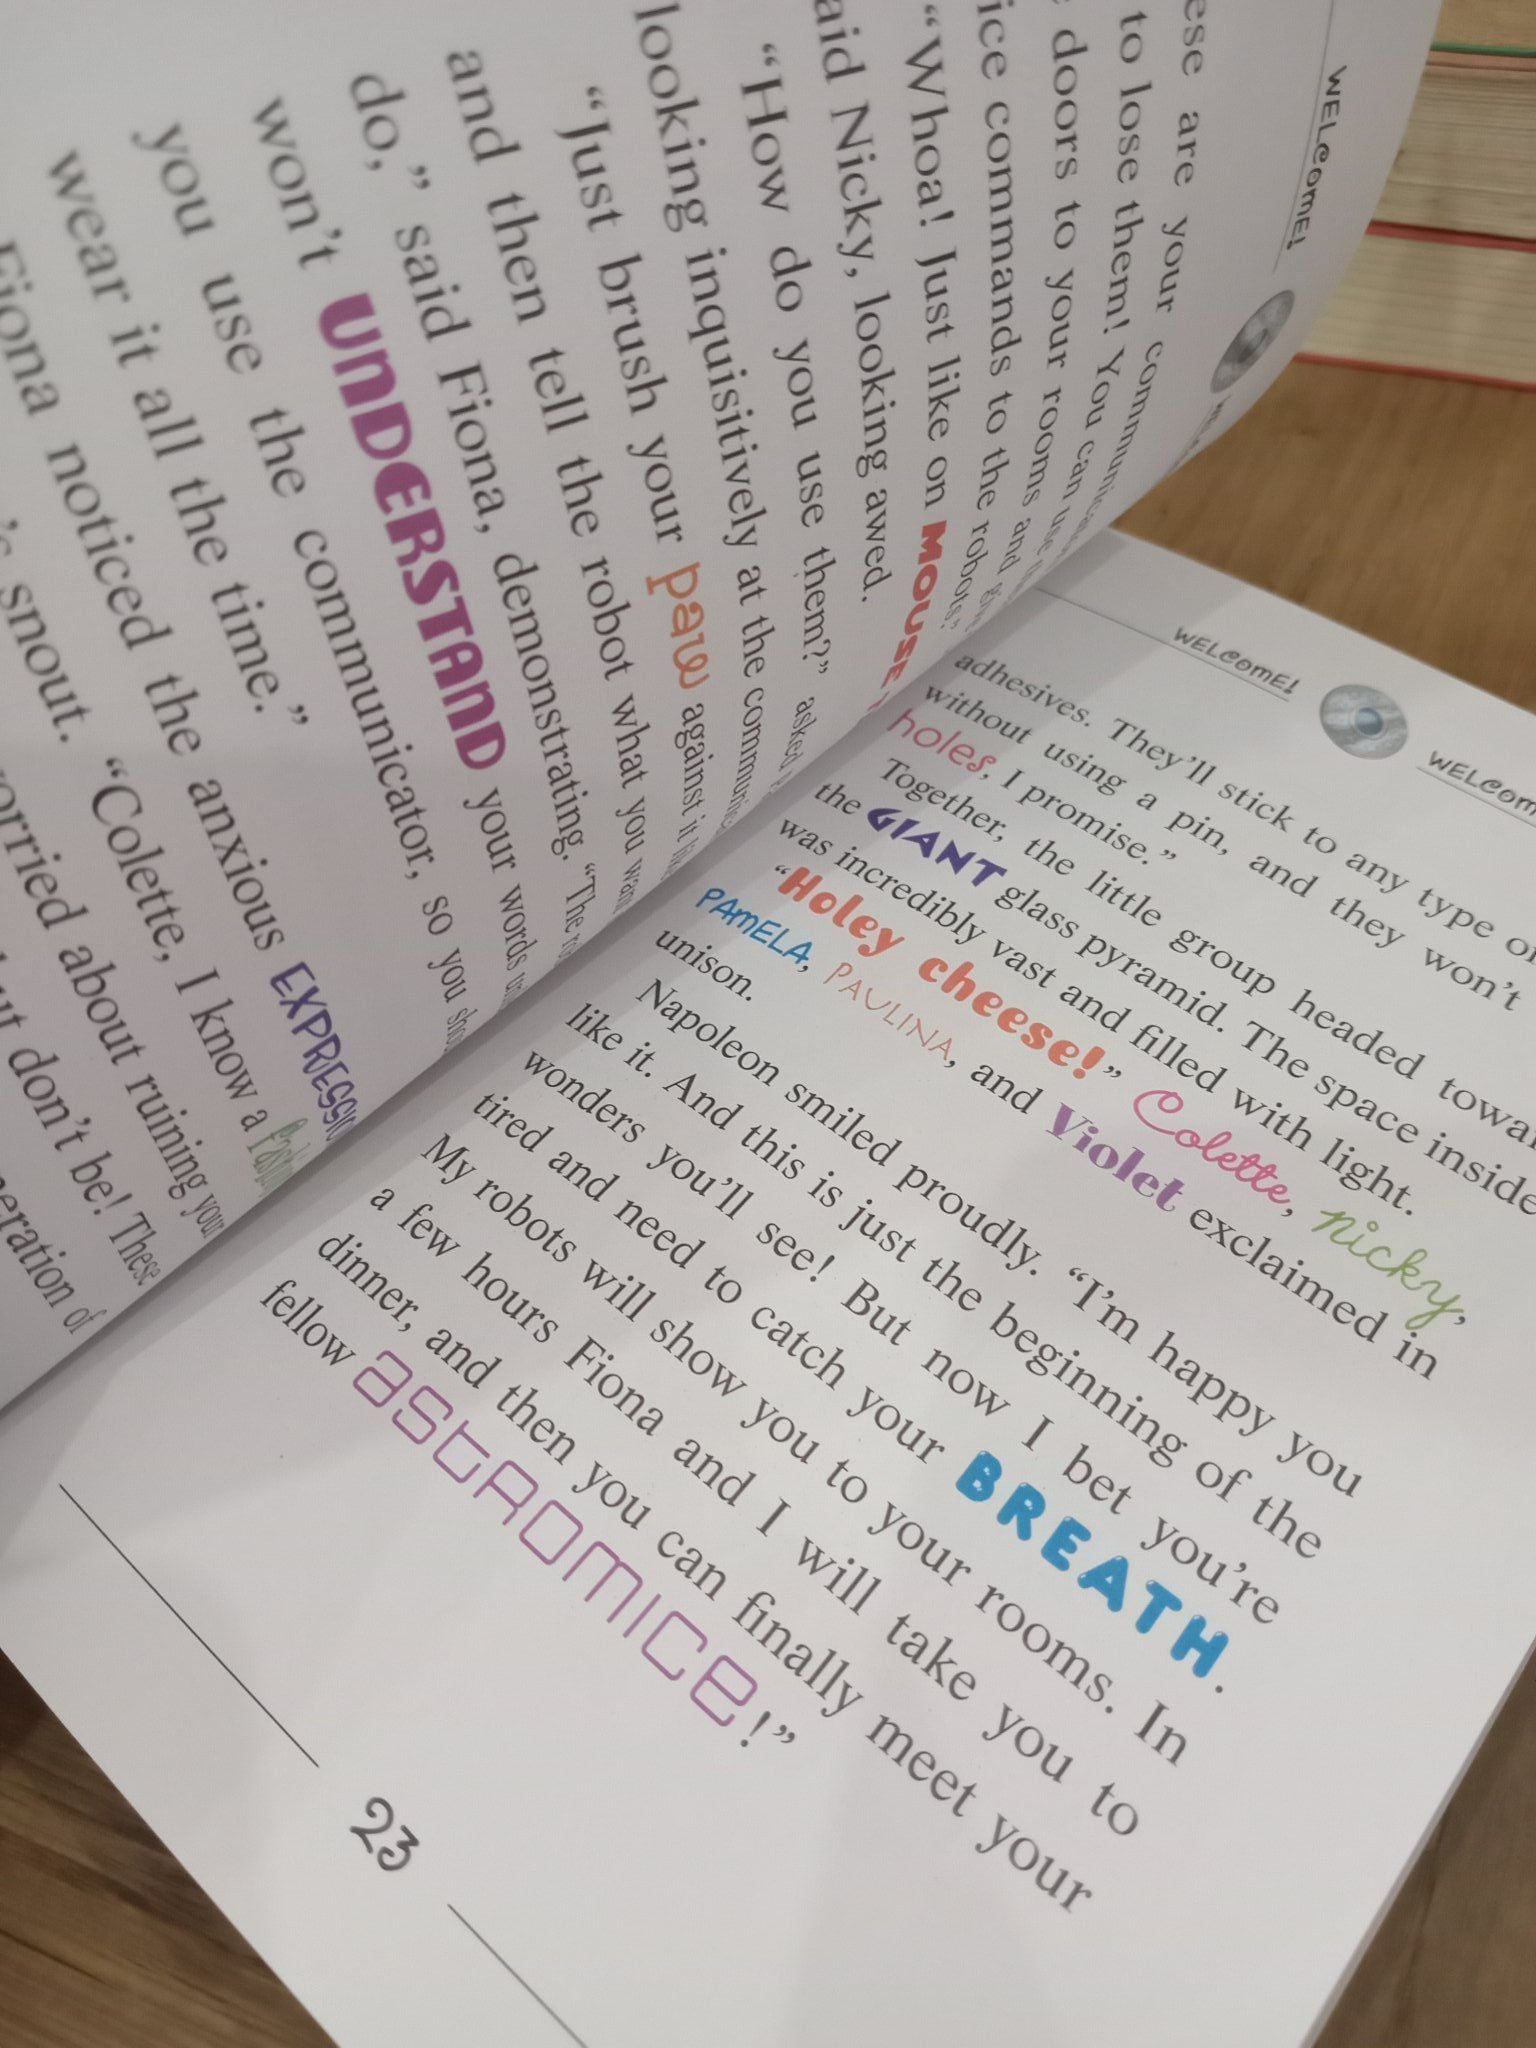 WELCOME!
ese are your
to lose them! You can use
doors to your rooms and
ice commands to the robots.
“Whoa! Just like on MOUSE
aid Nicky, looking awed.
“How do you use them?” asked
looking inquisitively at the
“Just brush your paw against it
and then tell the robot what you
do,” said Fiona, demonstrating. “The
won’t UNDERSTAND your words
you use the communicator, so you
wear it all the time.”
Fiona noticed the anxious
’s snout. “Colette, I know a
worried about ruining your
but don’t be! These
of
WELCOME!
adhesives. They’ll stick to any type of
without using a pin, and they won’t
holes, I promise.”
Together, the little group headed
the GIANT glass pyramid. The space inside
was incredibly vast and filled with light.
“Holey cheese!” Colette, Nicky,
PAMELA, PAULINA, and Violet exclaimed in
unison.
Napoleon smiled proudly. “I’m happy you
like it. And this is just the beginning of the
wonders you’ll see! But now I bet you’re
tired and need to catch your BREATH.
My robots will show you to your rooms. In
a few hours Fiona and I will take you to
dinner, and then you can finally meet your
fellow ASTROMICE!”
23